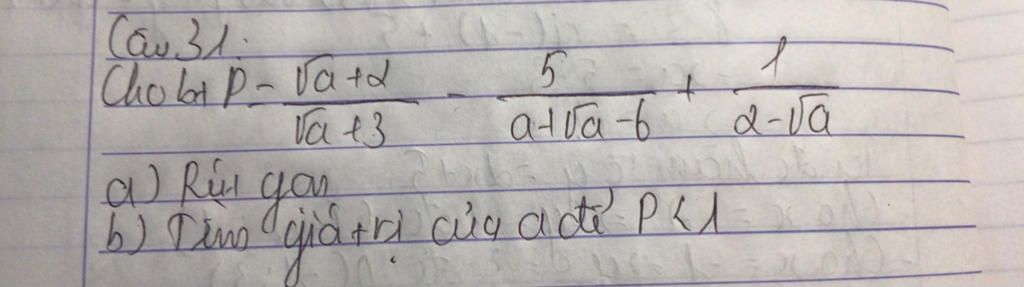 Câu 31:
Cho bt P = (√a + 2)/(√a + 3) - 5/(a + √a - 6) + 1/(2 - √a)
a) Rút gọn
b) Tìm giá trị của a để P < 1